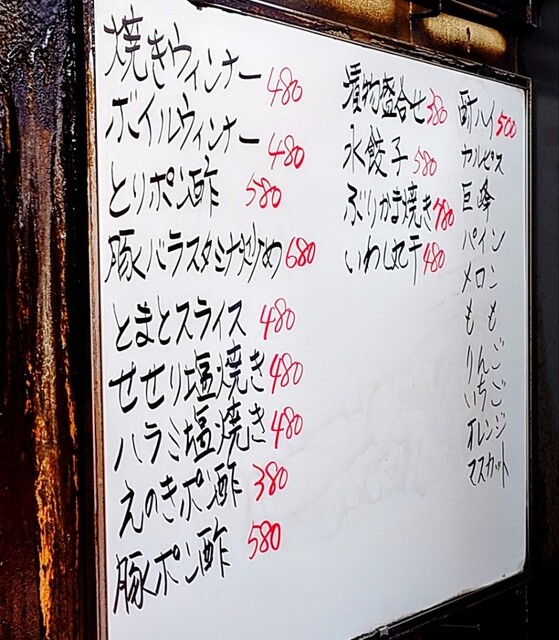 焼きウィンナー 480
ボイルウィンナー 480
とりポン酢 580
豚バラスタミナ炒め 680
とまとスライス 480
せせり塩焼き 480
ハラミ塩焼き 480
えのきポン酢 380
豚ポン酢 580
漬物盛合せ 380
水餃子 580
ぶりかま焼き 780
いわし丸干 480
酎ハイ 500
カルピス
巨峰
パイン
メロン
もも
りんご
いちご
オレンジ
マスカット